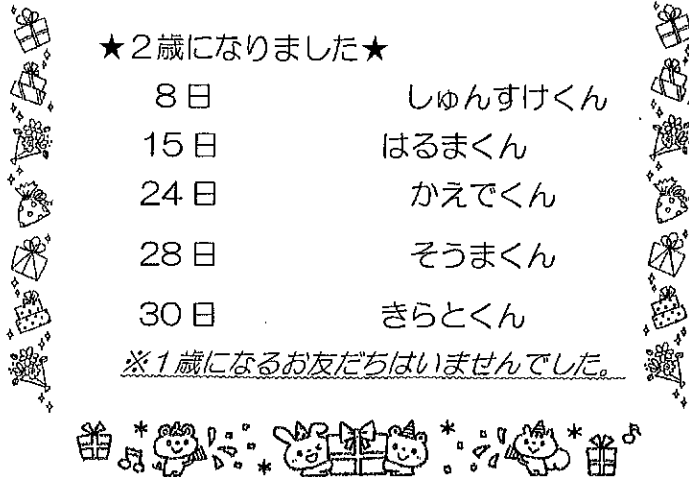 ★２歳になりました★
８日 しゅんすけくん
15日 はるまくん
24日 かえでくん
28日 そうまくん
30日 きらとくん
※１歳になるお友だちはいませんでした。